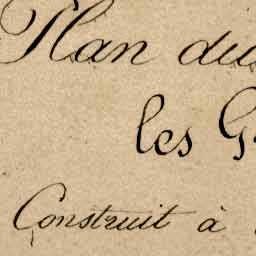 Plan du
les G
Construit à